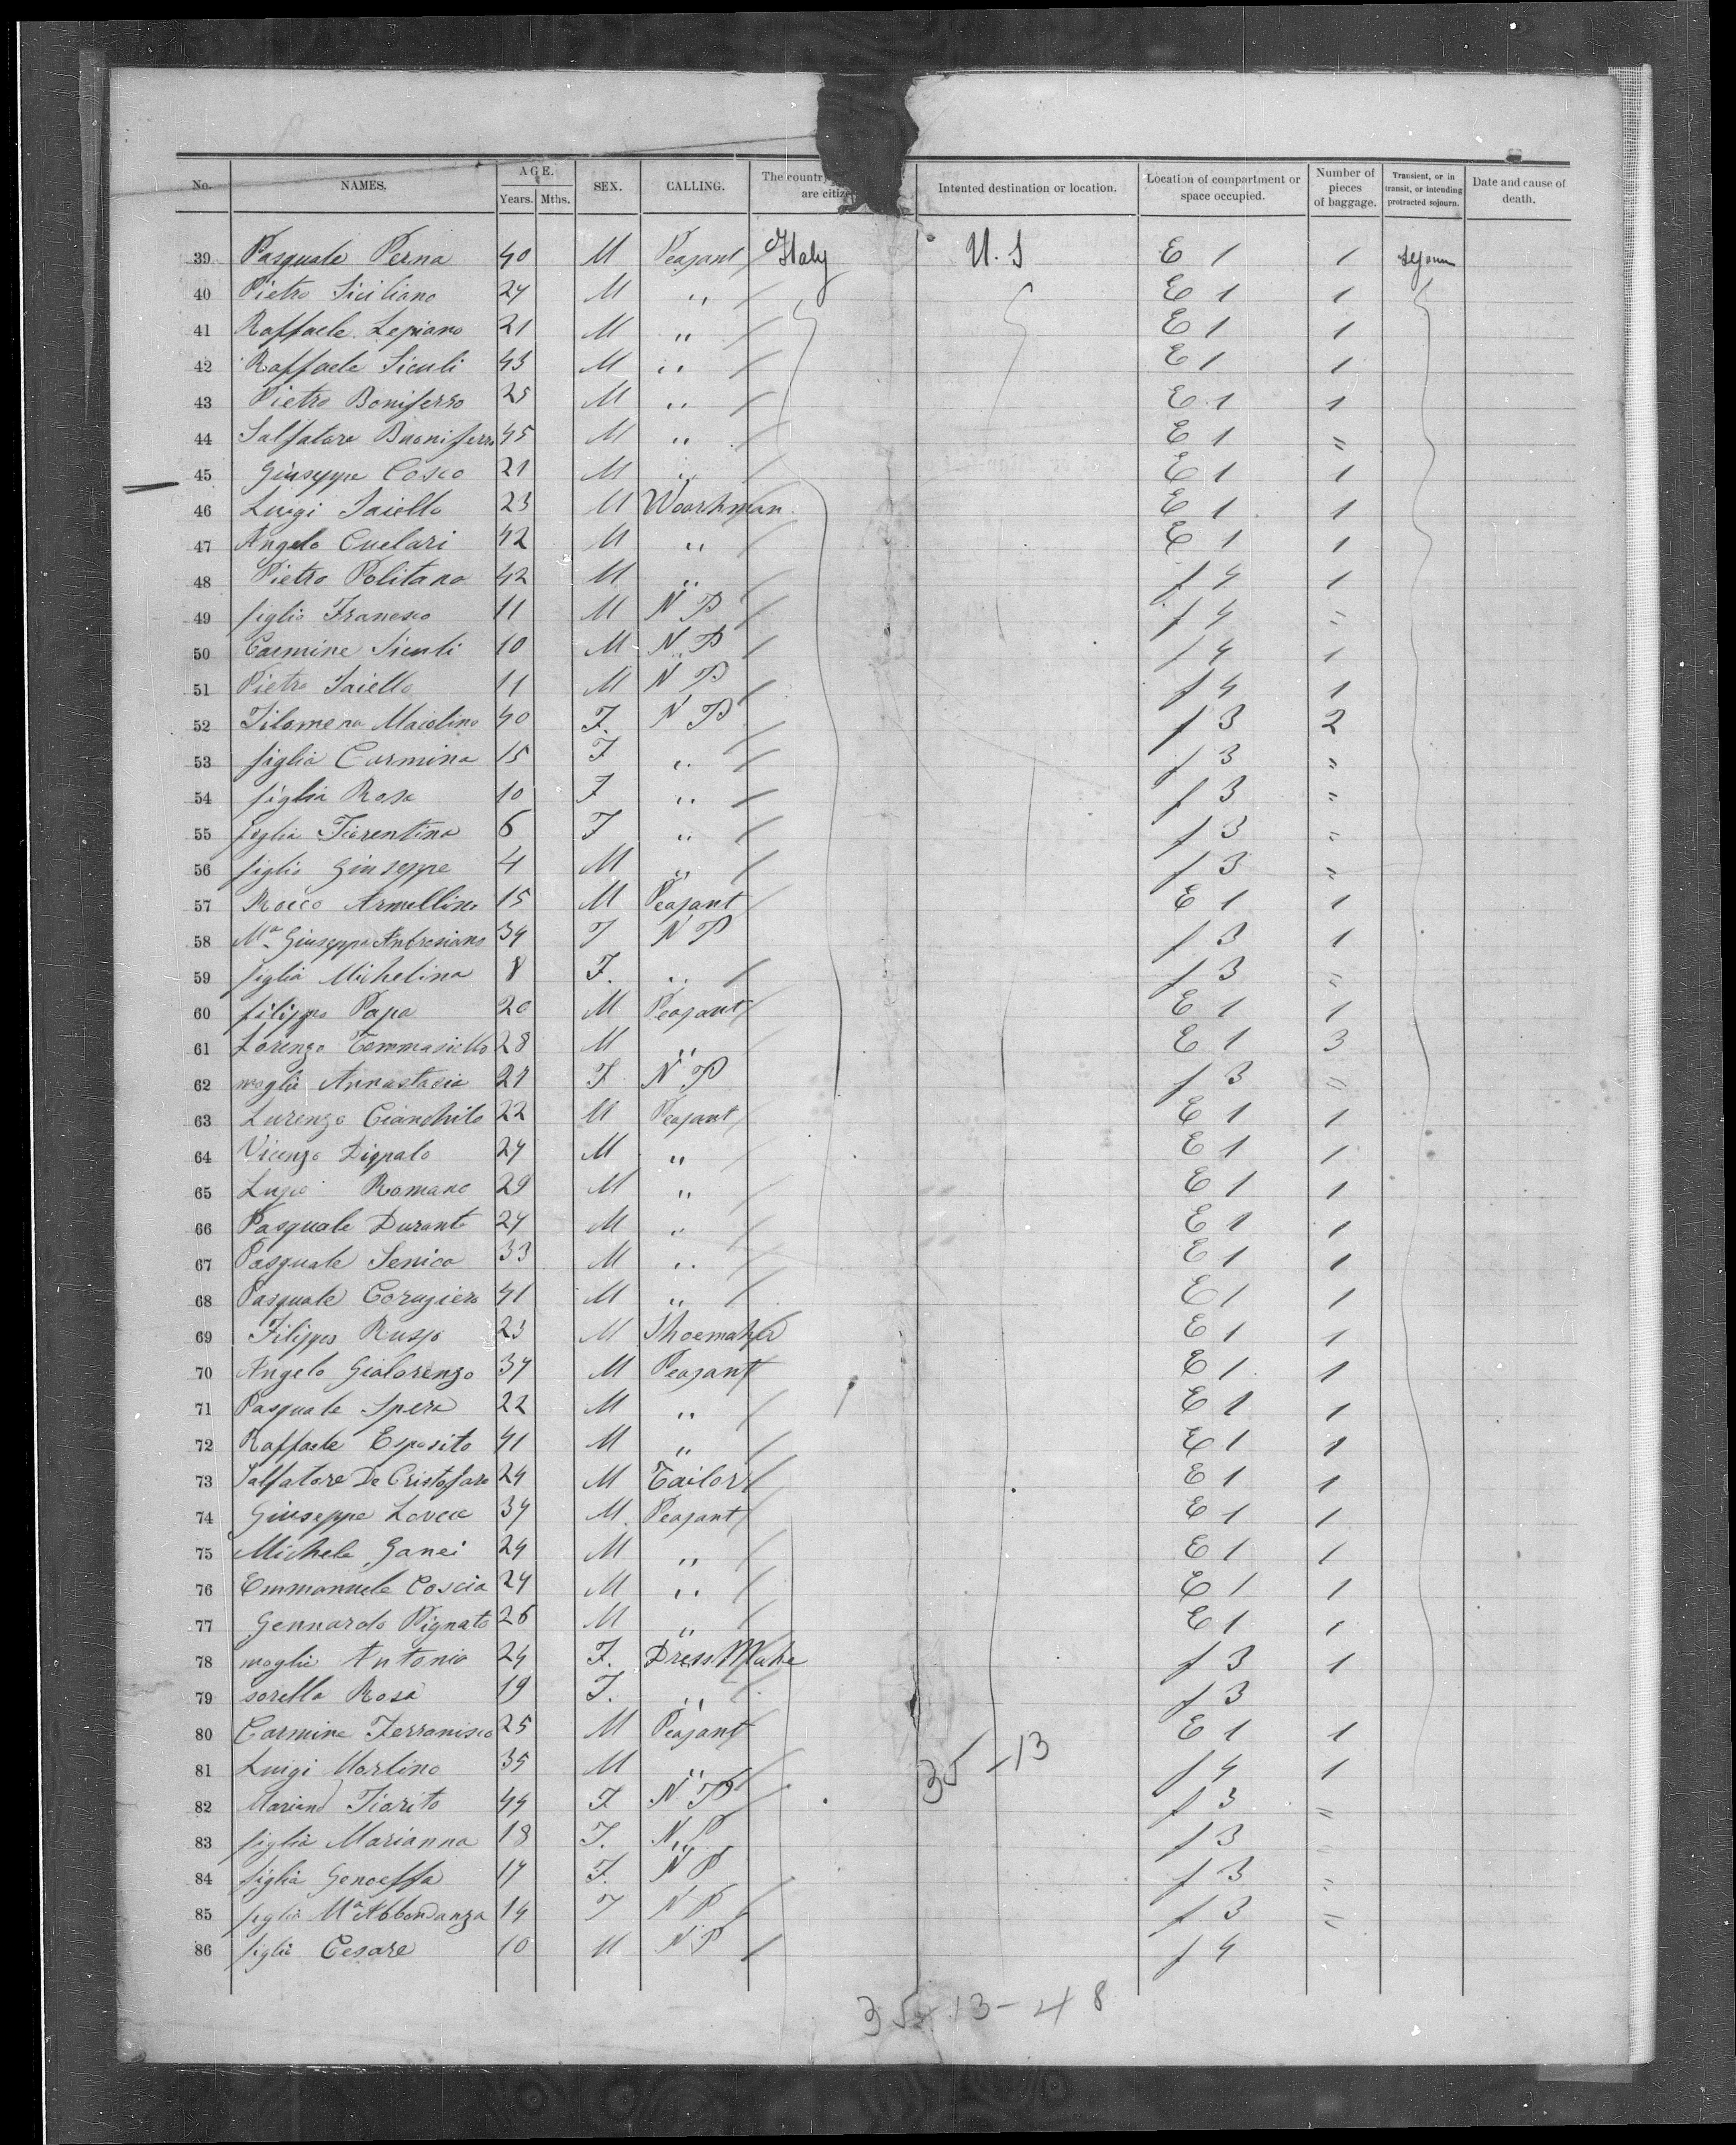 No. NAMES. AGE. Years. Mths. SEX. CALLING. The country are citize Intented destination or location. Location of compartment or space occupied. Number of pieces of baggage. Transient, or in transit, or intending protracted sejourn. Date and cause of death.
39 Pasquale Perna 40 M Peasant Italy U.S E 1 1 sejourn
40 Pietro Siciliano 24 M " E 1 1
41 Raffaele Lepiano 21 M " E 1 1
42 Raffaele Siculi 43 M " E 1 1
43 Pietro Boniferro 25 M " E 1 1
44 Salfatore Buoniferro 45 M " E 1 "
45 Giuseppe Cosco 21 M " E 1 1
46 Luigi Saiello 23 M Woorkman E 1 1
47 Angelo Cuelari 42 M " E 1 1
48 Pietro Politano 42 M " f 4 1
49 figlio Francesco 11 M N P f 4 "
50 Carmine Siculi 10 M N.P f 4 1
51 Pietro Saiello 11 M N P f 4 1
52 Filomena Maiolino 40 F. N P f 3 2
53 figlia Carmina 15 F " f 3 "
54 figlia Rosa 10 F " f 3 "
55 figlia Fiorentina 6 F " f 3 "
56 figlio Giuseppe 4 M " f 3 "
57 Rocco Armellino 15 M Peasant E 1 1
58 Ma Giuseppa Ambrosiano 34 F N P f 3 1
59 figlia Michelina 8 F. " f 3 "
60 filippo Papa 20 M Peasant E 1 1
61 Lorenzo Tommasiello 28 M " E 1 3
62 moglie Annastasia 27 F N P f 3 "
63 Lurenzo Cianchito 22 M Peasant E 1 1
64 Vicenzo Dignalo 24 M " E 1 1
65 Romano 29 M " E 1 1
66 Pasquale Durante 24 M " E 1 1
67 Pasquale Senica 33 M " E 1 1
68 Pasquale Corugiero 41 M " E 1 1
69 Filippo Russo 23 M Shoemaker E 1 1
70 Angelo Gialorenzo 34 M Peasant E 1 1
71 Pasquale Spera 22 M " E 1 1
72 Raffaele Esposito 41 M " E 1 1
73 Salfatore De Cristofaro 24 M Tailor E 1 1
74 Giuseppe 34 M Peasant E 1 1
75 Michele Ganei 24 M " E 1 1
76 Emmanuele Coscia 24 M " E 1 1
77 Gennarolo Pignato 26 M " E 1 1
78 moglie Antonia 24 F. Dress Make f 3 1
79 sorella Rosa 19 F. " f 3
80 Carmine Ferranisco 25 M Peasant E 1 1
81 Luigi Marlino 35 M " f 4 1
35 - 13
82 Mariand Fiorito 44 F N P f 3 "
83 figlia Marianna 18 F. N.P f 3
84 figlia Genoeffa 17 F. N P f 3 "
85 figlia Ma Abbondanza 14 F N P f 3 "
86 figlio Cesare 10 M N P f 4
35 13 - 48